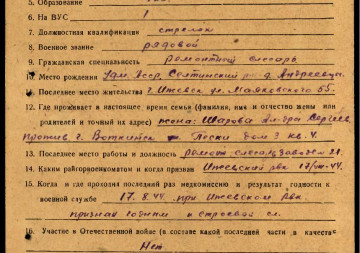 5. Образование
6. На ВУС 1
7. Должностная квалификация стрелок
8. Военное звание рядовой
9. Гражданская специальность ремонтный слесарь
10. Место рождения Удм. Ссср, Селтинский р-н д. Андреевцы
11. Последнее место жительства г. Ижевск ул. Маяковского 55.
12. Где проживает в настоящее время семья (фамилия, имя и отчество жены или
родителей и точный их адрес) жена: Шарова
против г. Воткинск Пески дом 3 кв. 4.
13. Последнее место работы и должность завод 71.
14. Каким райгорвоенкоматом и когда призван Ижевский рвк 17/VIII-44.
15. Когда и где проходил последний раз медкомиссию и результат годности к
военной службе 17.8.44. при Ижевском рвк.
признан годным к строевой сл.
16. Участие в Отечественной войне (в составе какой последней части в качестве
Нет